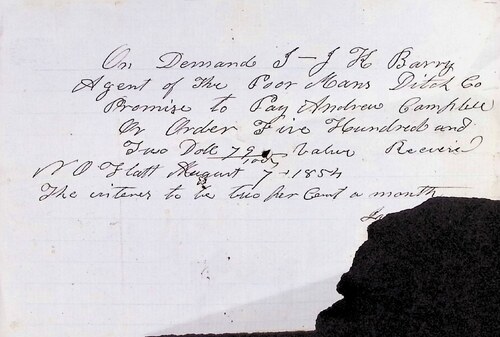 On Demand I - J H Barry
Agent of The Poor Mans Ditch Co
Promise to Pay Andrew Campbell
Or Order Five Hundred and
Two Doll 79/100 Value Received
N O Flatt August 7th 1854
The interest to be two per Cent a month